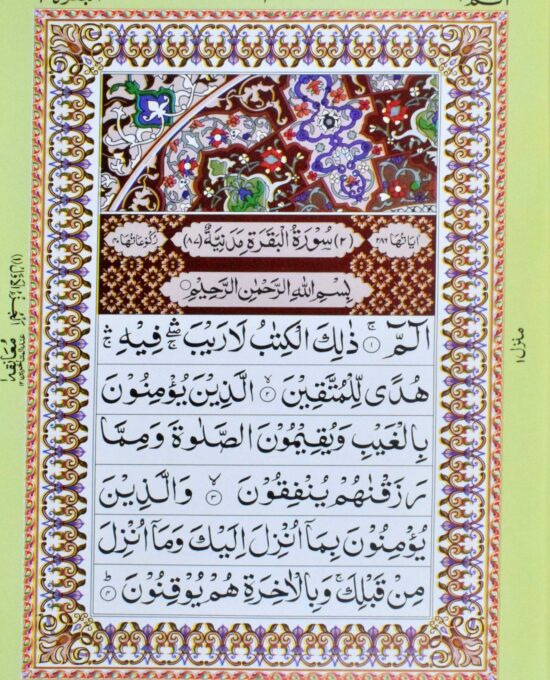 اٰيَاتُهَا ٢٨٦ (٢) سُوْرَةُ الْبَقَرَةِ مَدَنِيَّةٌ (٨٧) رُكُوْعَاتُهَا ٤٠
بِسْمِ اللّٰهِ الرَّحْمٰنِ الرَّحِيْمِ
الٓمّٓ ۚ‏ ١ ذٰلِكَ الْكِتٰبُ لَا رَيْبَ ۛۖ فِيْهِ ۛۚ
هُدًى لِّلْمُتَّقِيْنَ ۙ‏ ٢ الَّذِيْنَ يُؤْمِنُوْنَ
بِالْغَيْبِ وَيُقِيْمُوْنَ الصَّلٰوةَ وَمِمَّا
رَزَقْنٰهُمْ يُنْفِقُوْنَ ۙ‏ ٣ وَالَّذِيْنَ
يُؤْمِنُوْنَ بِمَآ اُنْزِلَ اِلَيْكَ وَمَآ اُنْزِلَ
مِنْ قَبْلِكَ ۚ وَبِالْاٰخِرَةِ هُمْ يُوْقِنُوْنَ ؕ‏ ٤
منزل ١
معانقة